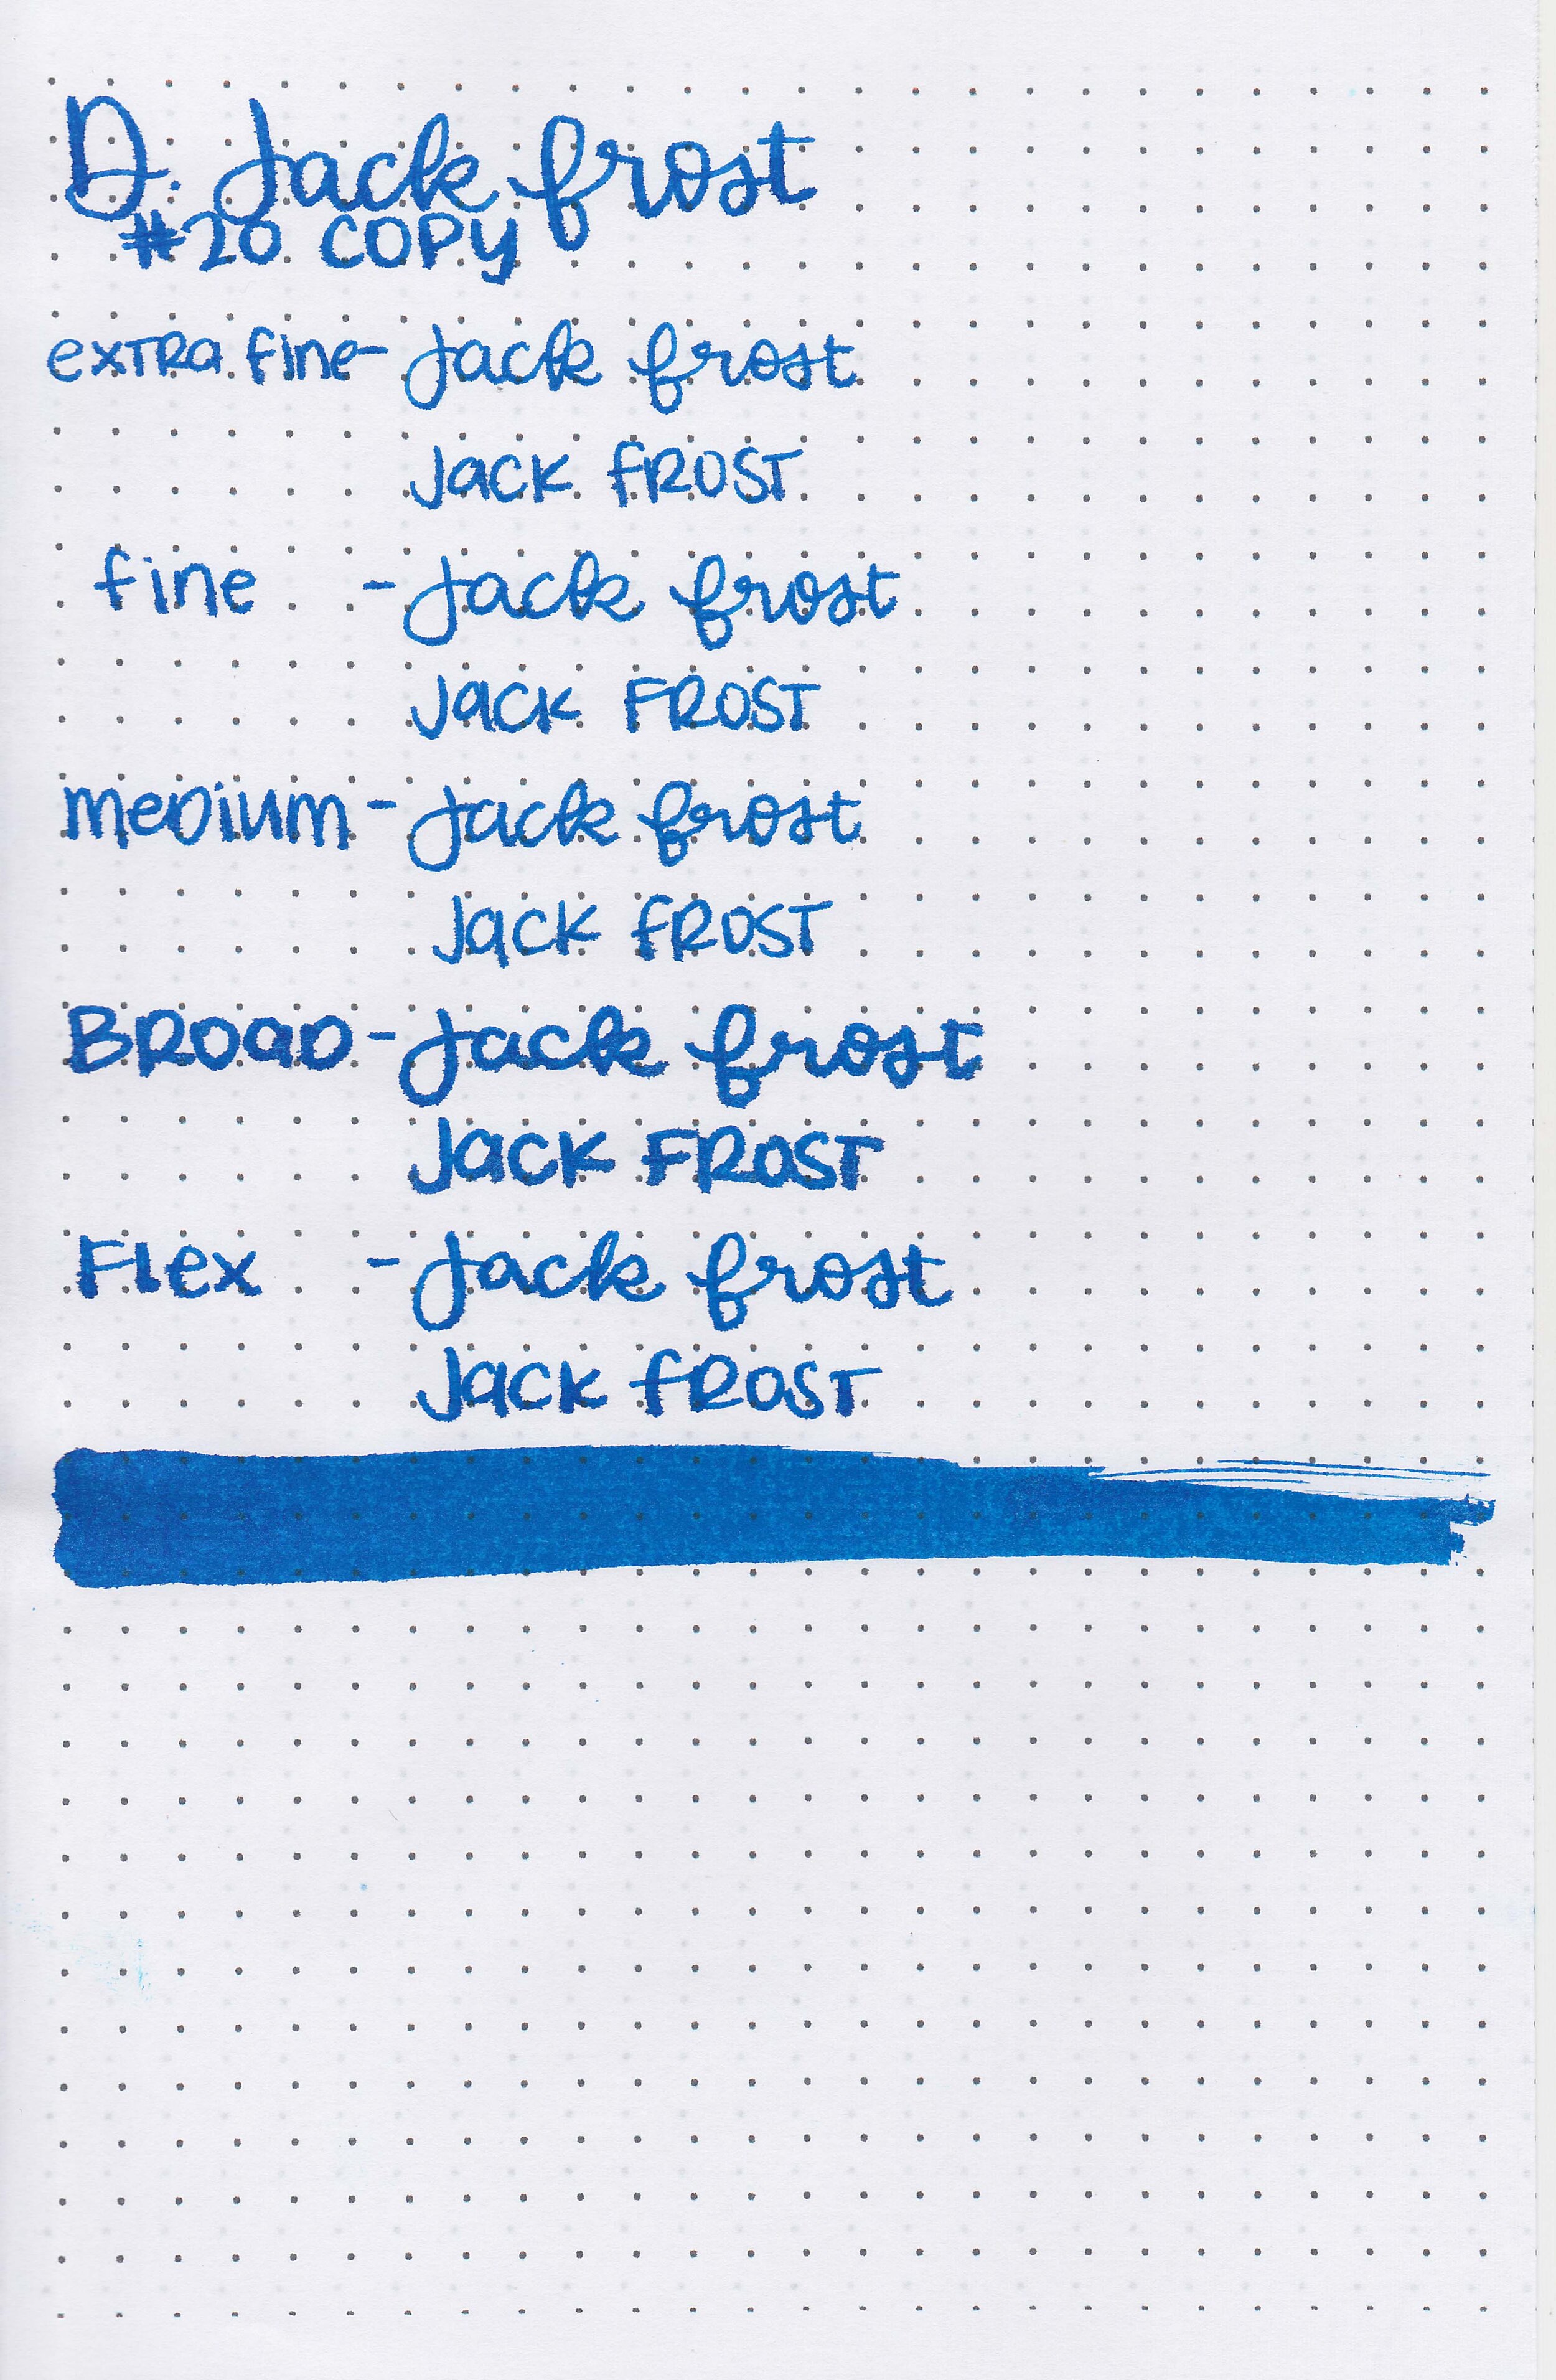 D. Jack frost
#20 COPY
exTRa fine- Jack frost
Jack fROST
fine - Jack frost
Jack FROST
meDium - Jack frost
Jack fROST
BROaD - Jack frost
Jack FROST
Flex - Jack frost
Jack fROST